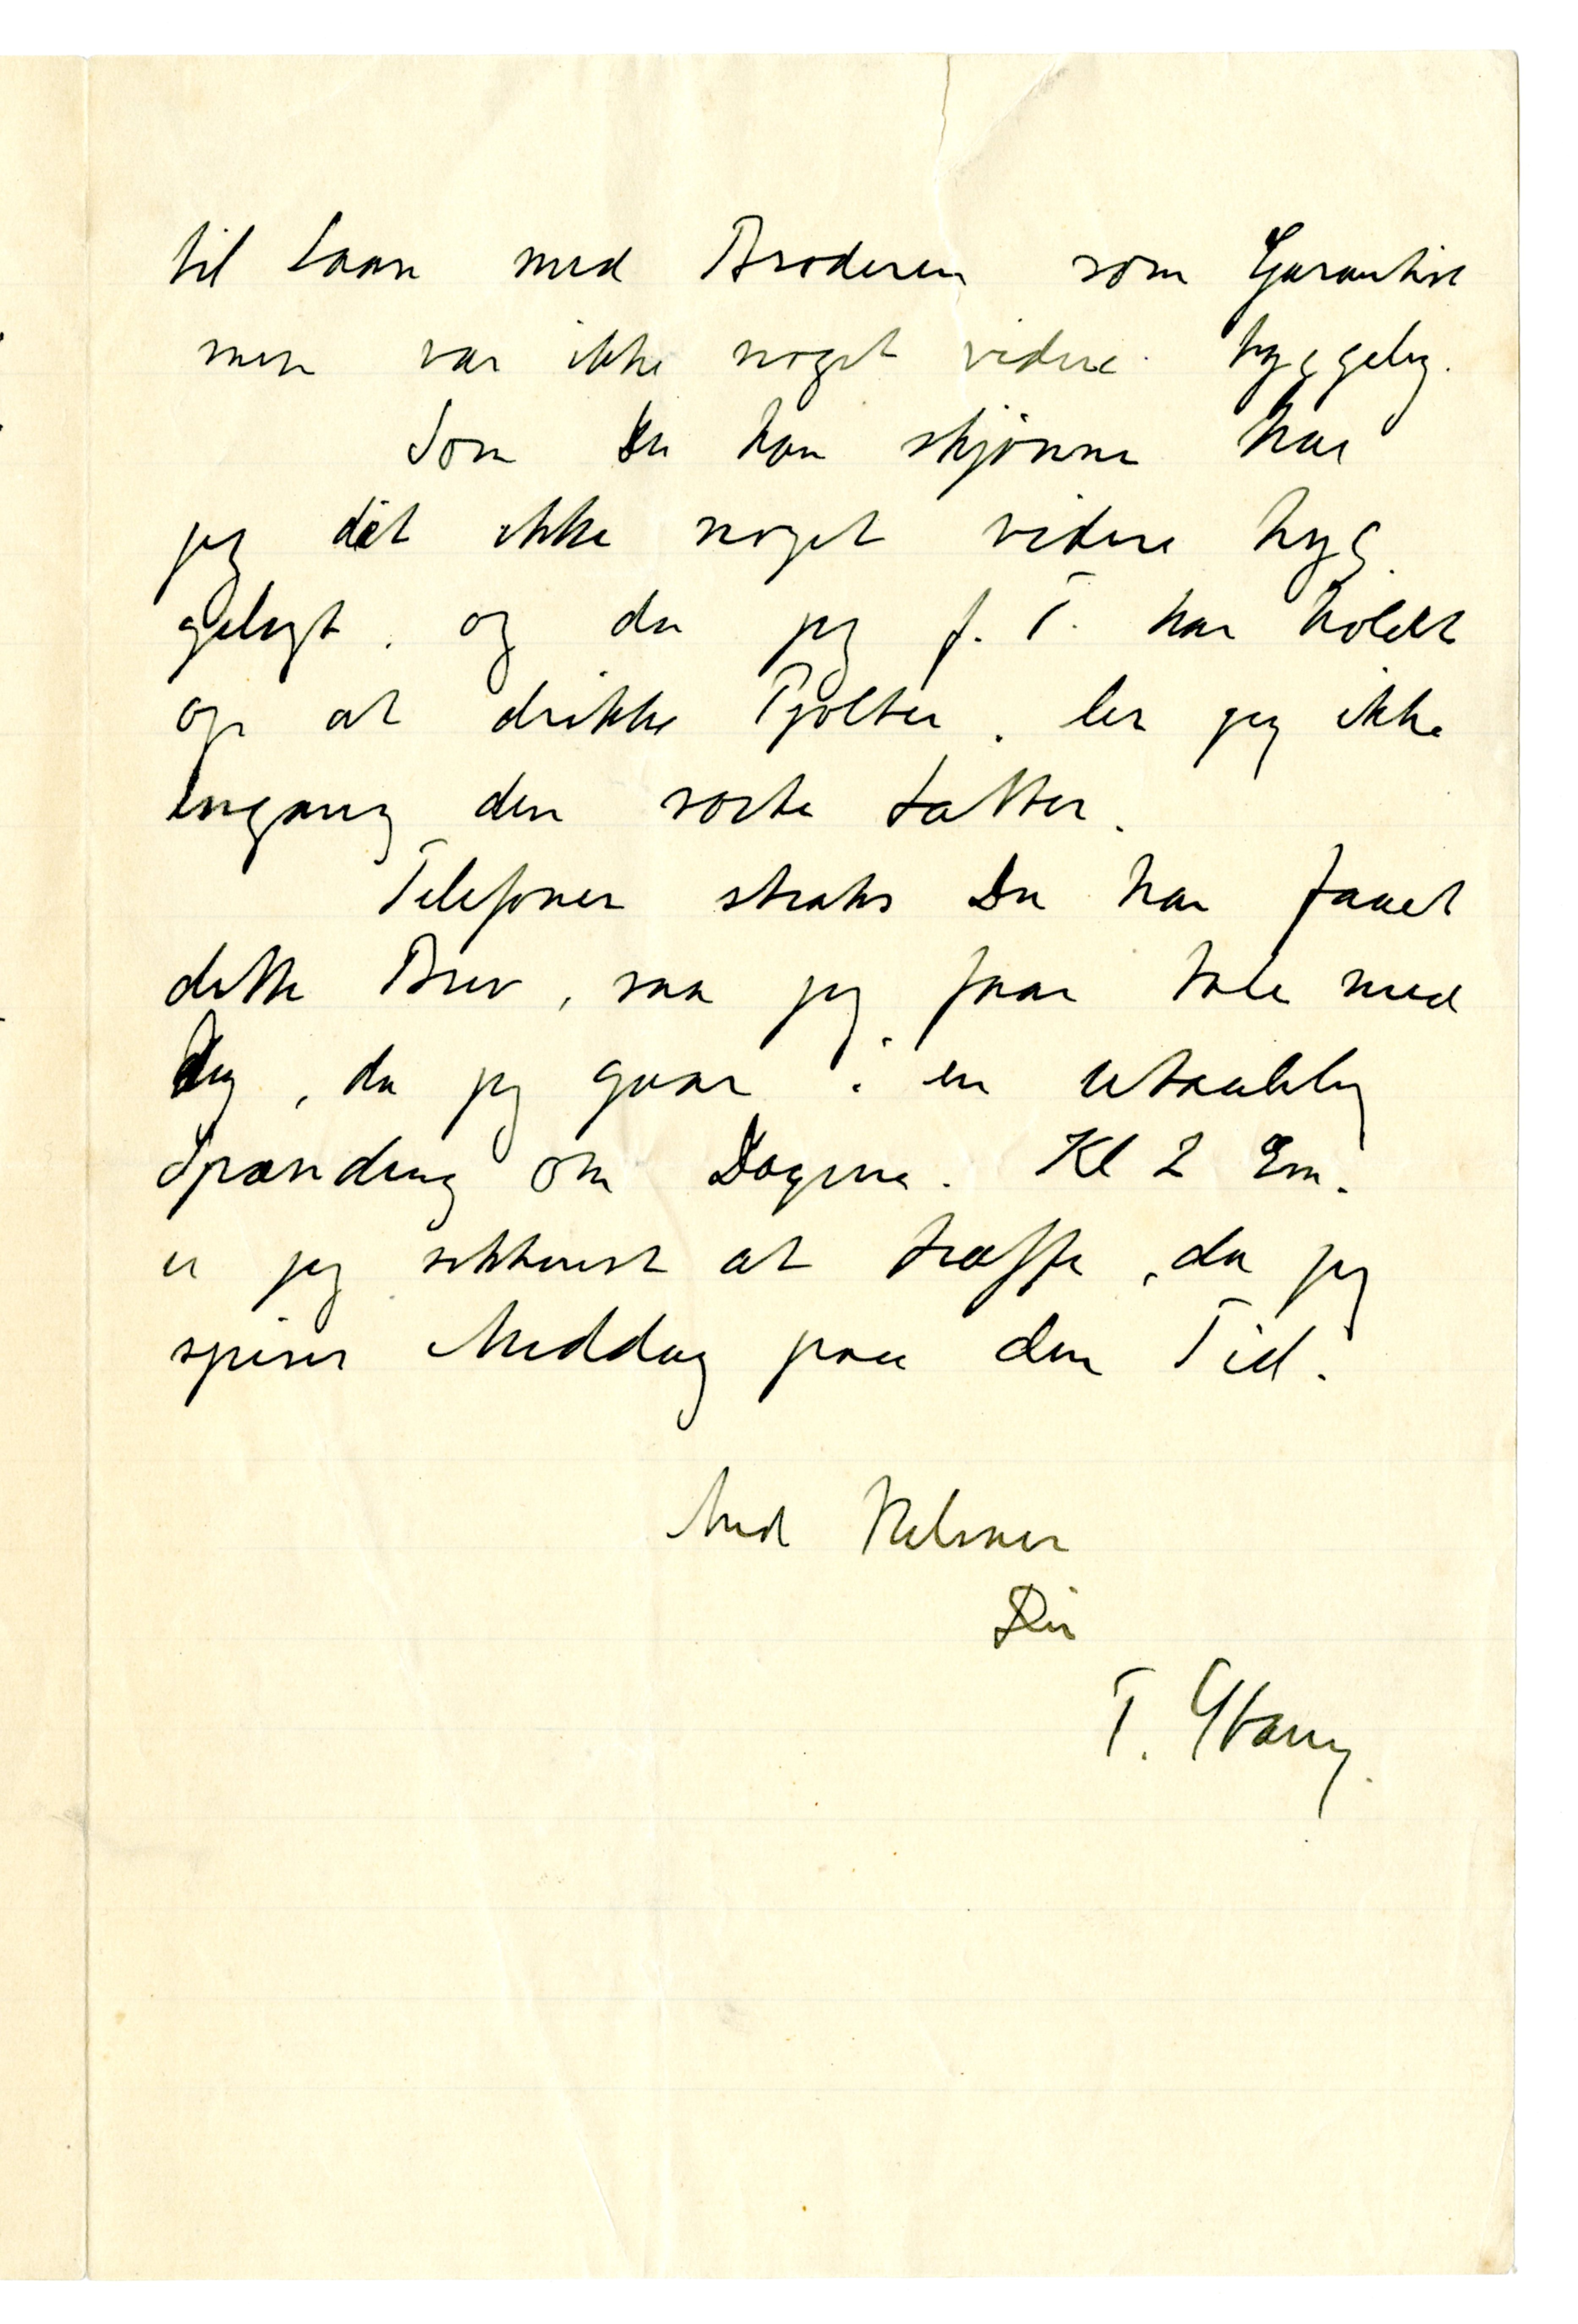 til Laan med Broderen som Garantist
men var ikke noget videre hyggelig.
Som Du kan skjønne har
jeg det ikke noget videre hyg
geligt, og da jeg f. T. har holdt
op at drikke Pjolter, ler jeg ikke
engang den sorte Latter.
Telefoner straks Du har faaet
dette Brev, saa jeg faar tale med
Dig, da jeg gaar i en utaalelig
Spænding om Dagene. Kl 2 Em.
er jeg sikkerest at træffe, da jeg
spiser Middag paa den Tid.
Med Hilsner
Din
T.